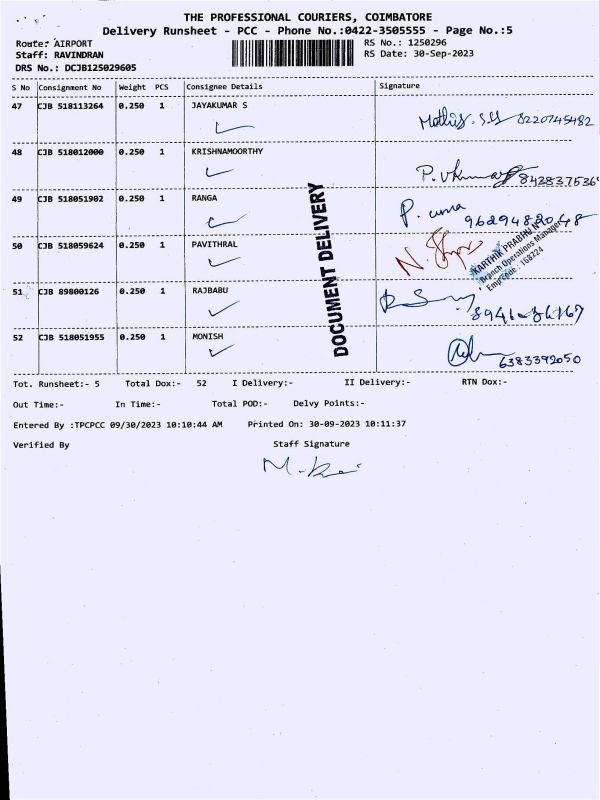 THE PROFESSIONAL COURIERS, COIMBATORE
Delivery Runsheet - PCC - Phone No.:0422-3505555 - Page No.:5
Route: AIRPORT
RS No.: 1250296
Staff: RAVINDRAN
RS Date: 30-Sep-2023
DRS No.: DCJB125029605
S No Consignment No Weight PCS Consignee Details Signature
47 CJB 518113264 0.250 1 JAYAKUMAR S
8220745482
48 CJB 518012000 0.250 1 KRISHNAMOORTHY
49 CJB 518051902 0.250 1 RANGA
P. uma
50 CJB 518059624 0.250 1 PAVITHRAL
KARTHIK PRABHU N
Branch Operations Manager
Emp Code : 168224
51 CJB 89800126 0.250 1 RAJBABU
52 CJB 518051955 0.250 1 MONISH
6383392050
DOCUMENT DELIVERY
Tot. Runsheet:- 5 Total Dox:- 52 I Delivery:- II Delivery:- RTN Dox:-
Out Time:- In Time:- Total POD:- Delvy Points:-
Entered By :TPCPCC 09/30/2023 10:10:44 AM Printed On: 30-09-2023 10:11:37
Verified By Staff Signature